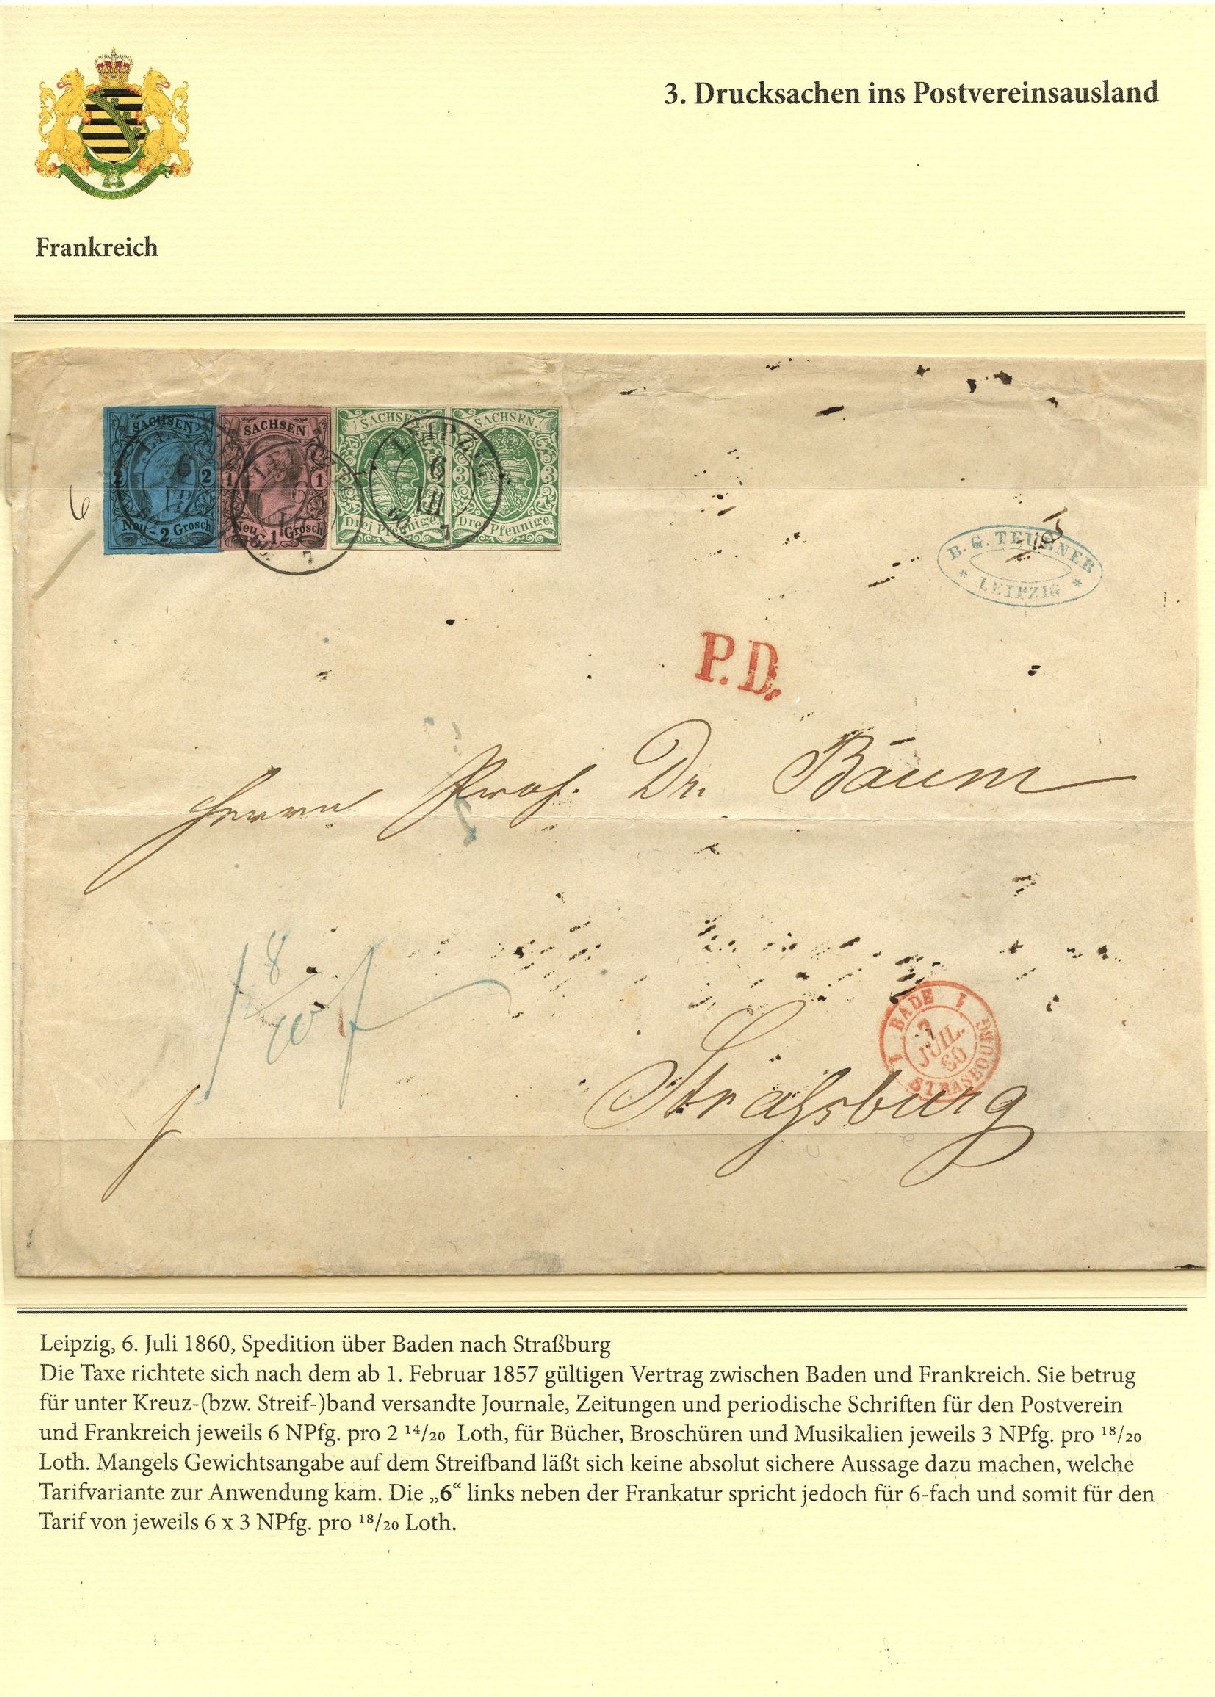 3. Drucksachen ins Postvereinsausland
Frankreich
SACHSEN
2 2
Neu - 2 Grosch
SACHSEN
1 1
Neu - 1 Grosch
SACHSEN.
Drei Pfennige
SACHSEN.
Drei Pfennige
LEIPZIG
6
III
7
6
B. G. TEUBNER
* LEIPZIG *
P.D.
Herrn Prof. Dr. Baum
18/20 f
1 BADE 1
JUIL.
60
STRASBOURG
Straßburg
Leipzig, 6. Juli 1860, Spedition über Baden nach Straßburg
Die Taxe richtete sich nach dem ab 1. Februar 1857 gültigen Vertrag zwischen Baden und Frankreich. Sie betrug
für unter Kreuz-(bzw. Streif-)band versandte Journale, Zeitungen und periodische Schriften für den Postverein
und Frankreich jeweils 6 NPfg. pro 2 14/20 Loth, für Bücher, Broschüren und Musikalien jeweils 3 NPfg. pro 18/20
Loth. Mangels Gewichtsangabe auf dem Streifband läßt sich keine absolut sichere Aussage dazu machen, welche
Tarifvariante zur Anwendung kam. Die „6“ links neben der Frankatur spricht jedoch für 6-fach und somit für den
Tarif von jeweils 6 x 3 NPfg. pro 18/20 Loth.